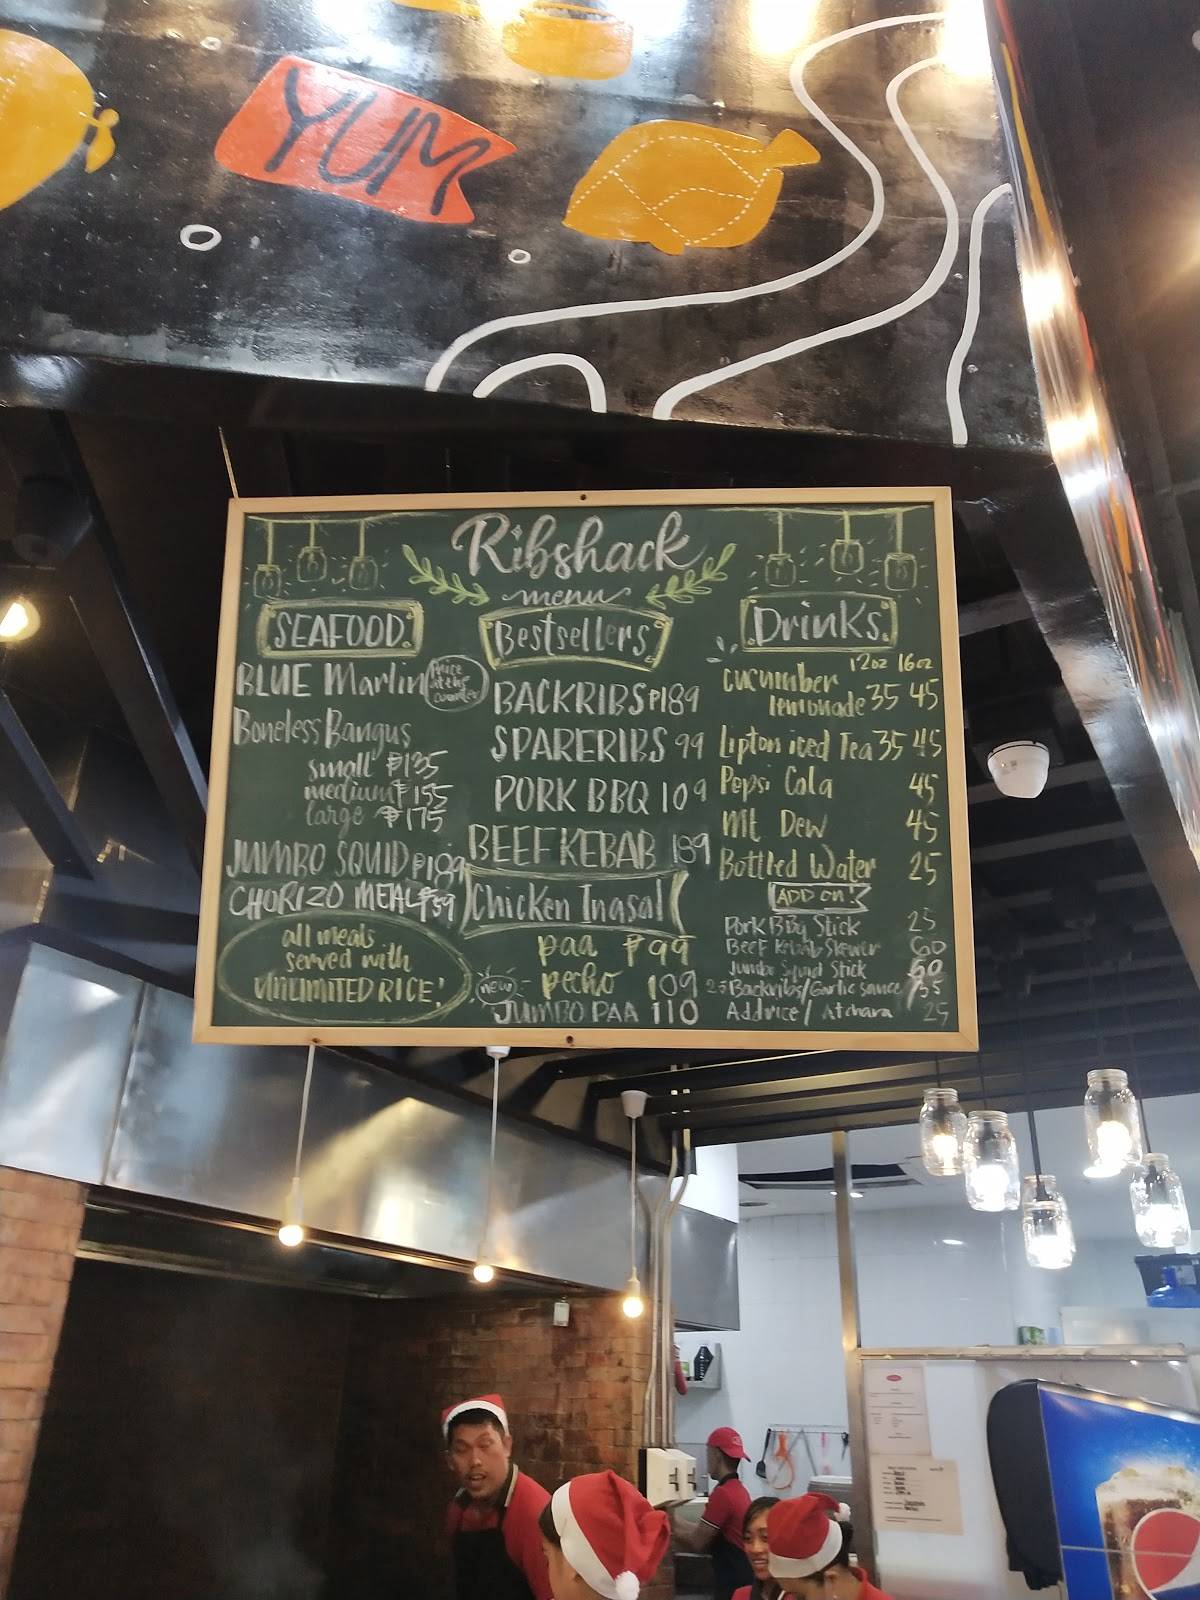 YUM
Ribshack
menu
SEAFOOD
BLUE Marlin
Price at the counter
Boneless Bangus
small ₱135
medium ₱155
large ₱175
JUMBO SQUID ₱189
CHORIZO MEAL ₱59
all meals
served with
UNLIMITED RICE!
Bestsellers
BACKRIBS ₱189
SPARERIBS 99
PORK BBQ 109
BEEF KEBAB 189
Chicken Inasal
paa ₱99
pecho 109
new
JUMBO PAA 110
Drinks
12oz 16oz
cucumber
lemonade 35 45
Lipton iced Tea 35 45
Pepsi Cola 45
Mt Dew 45
Bottled Water 25
ADD on!
Pork BBq Stick 25
Beef Kebab Skewer 60
Jumbo Squid Stick 60
25 Backribs/Garlic sauce /35
Add rice / Atchara 25